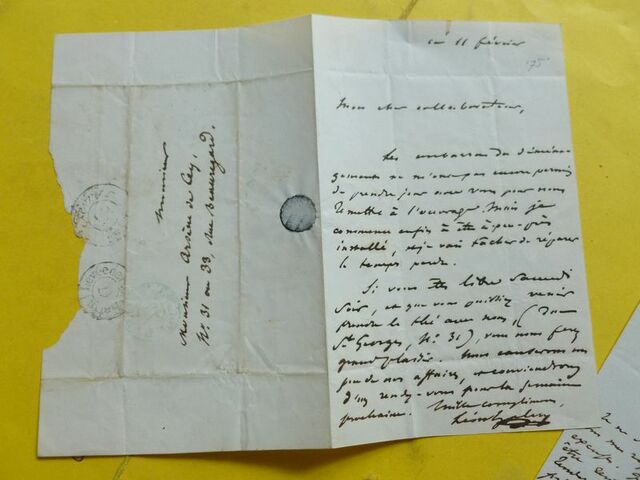 ce 11 février
Mon cher collaborateur,
Les embarras du déména-
gement ne m'ont pas encore permis
de prendre jour avec vous pour nous
remettre à l'ouvrage. Mais je
commence enfin à être à-peu-près
installé, et je vais tâcher de réparer
le temps perdu.
Si vous êtes libre samedi
soir, et que vous puissiez venir
prendre le thé avec nous, (Rue
St Georges, N. 31), vous nous ferez
grand plaisir. Nous causerons un
peu de nos affaires, et conviendrons
d'un rendez-vous pour la semaine
prochaine. Mille complimens
Léon Halévy
Monsieur
Monsieur Arsène de Cey,
N.º 31 ou 33, Rue Beauregard.